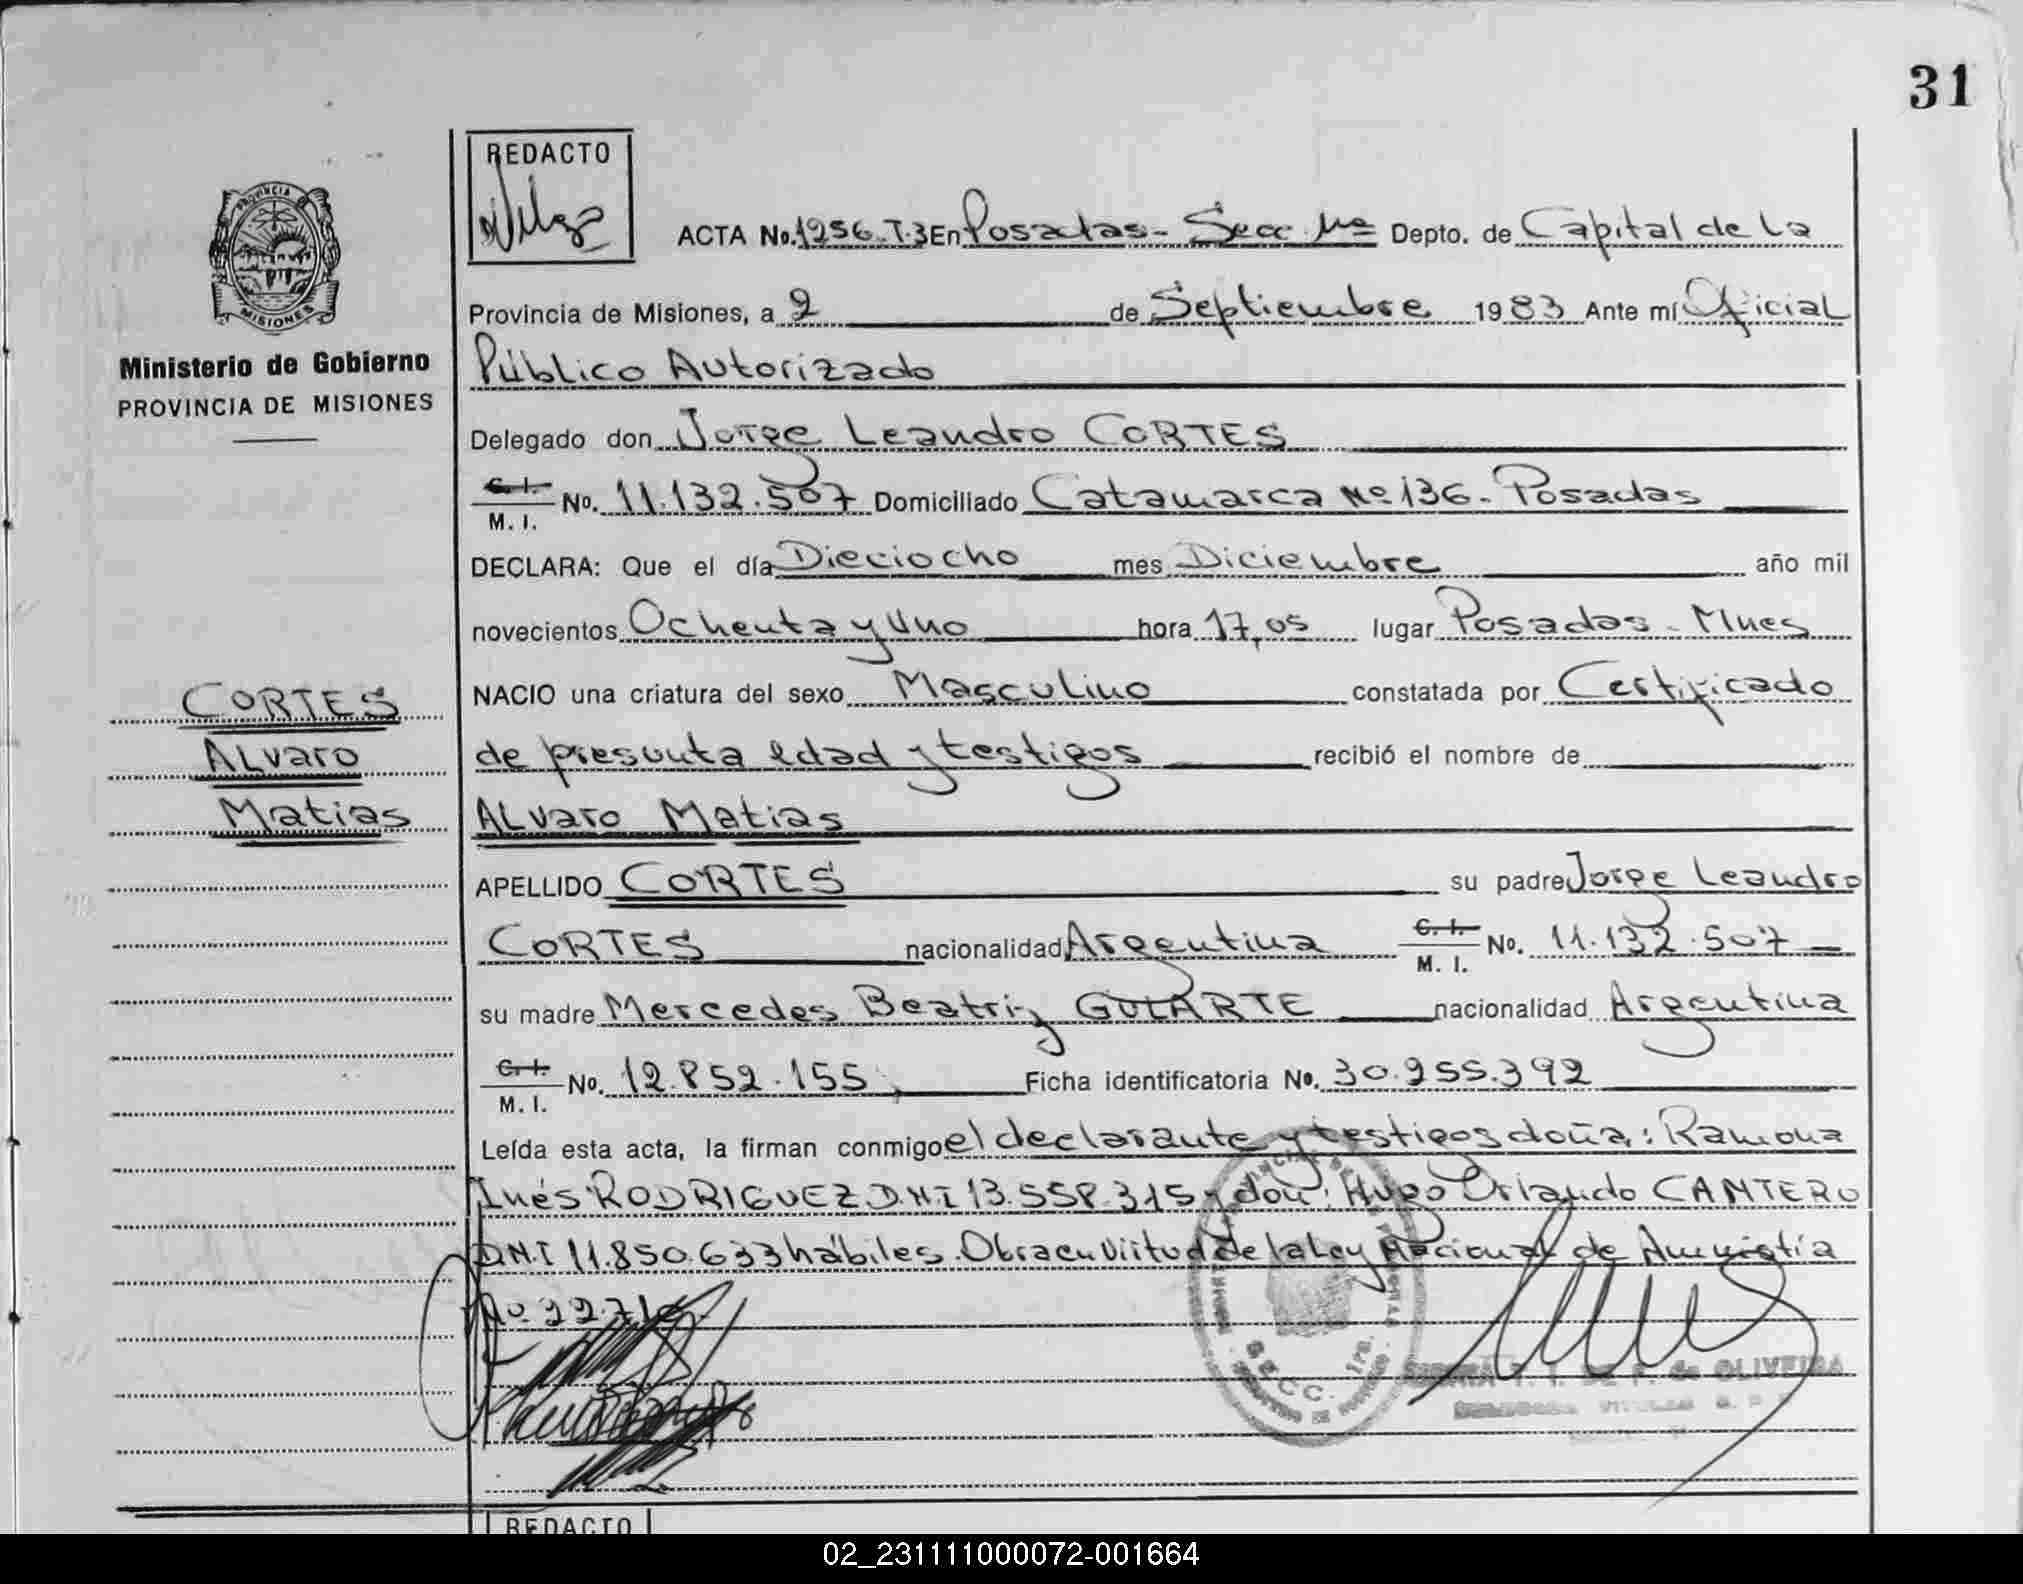 31
REDACTO
ACTA No. 1256.T.3 En Posadas - Secc 1ra Depto. de Capital de la
Provincia de Misiones, a 2 de Septiembre 1983 Ante mí Oficial
Público Autorizado
PROVINCIA
MISIONES
Ministerio de Gobierno
PROVINCIA DE MISIONES
Delegado don Jorge Leandro CORTES
C. I. M. I. No. 11.132.507 Domiciliado Catamarca Nº 136 - Posadas
DECLARA: Que el día Dieciocho mes Diciembre año mil
novecientos Ochenta y Uno hora 17,05 lugar Posadas - Mnes
NACIO una criatura del sexo Masculino constatada por Certificado
de presunta edad y testigos recibió el nombre de
Alvaro Matias
CORTES
Alvaro
Matias
APELLIDO CORTES su padre Jorge Leandro
CORTES nacionalidad Argentina C. I. M. I. No. 11.132.507
su madre Mercedes Beatriz GULARTE nacionalidad Argentina
C. I. M. I. No. 12.852.155, Ficha identificatoria No. 30.255.392
Leída esta acta, la firman conmigo el declarante y testigos doña: Ramona
Inés RODRIGUEZ D.N.I 13.558.315 y don: Hugo Orlando CANTERO
D.N.I 11.850.633 hábiles. Obra en Virtud de la Ley Nacional de Amnistía
No 22.710
SECC. 1ra.
de OLIVEIRA
REDACTO
02_231111000072-001664